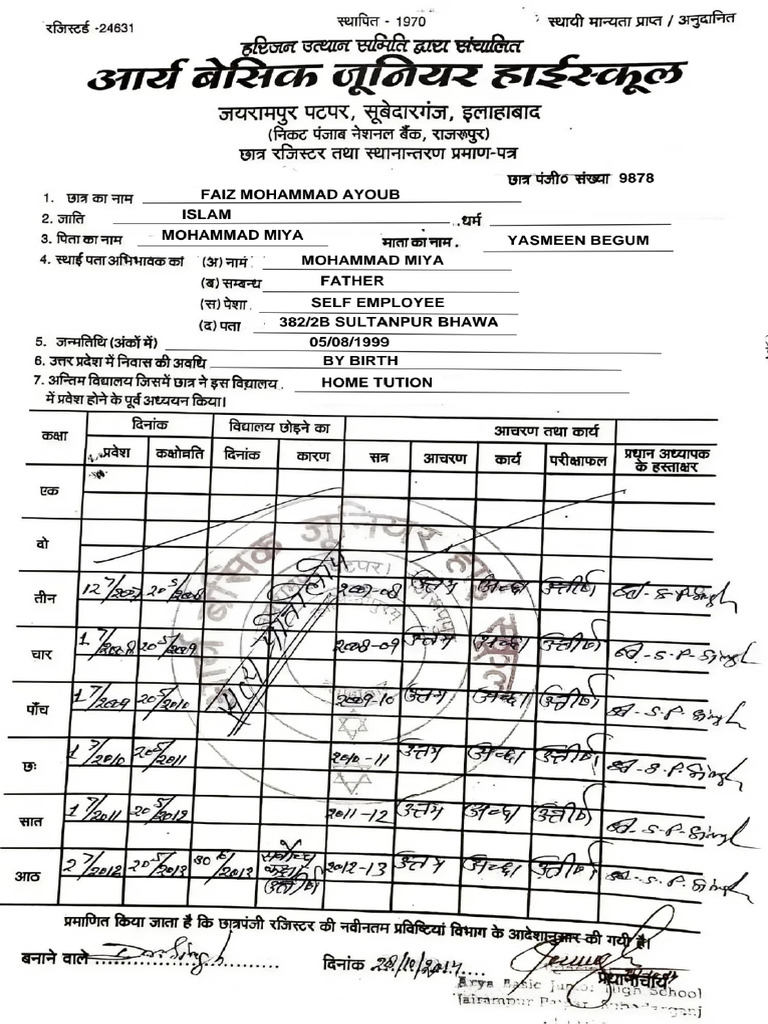 रजिस्टर्ड -24631 स्थापित - 1970 स्थायी मान्यता प्राप्त / अनुदानित
हरिजन उत्थान समिति द्वारा संचालित
आर्य बेसिक जूनियर हाईस्कूल
जयरामपुर पटपर, सूबेदारगंज, इलाहाबाद
(निकट पंजाब नेशनल बैंक, राजरूपुर)
छात्र रजिस्टर तथा स्थानान्तरण प्रमाण-पत्र
छात्र पंजी० संख्या 9878
1. छात्र का नाम FAIZ MOHAMMAD AYOUB
2. जाति ISLAM ..धर्म
3. पिता का नाम MOHAMMAD MIYA माता का नाम . YASMEEN BEGUM
4. स्थाई पता अभिभावक का (अ) नाम MOHAMMAD MIYA
(ब) सम्बन्ध FATHER
(स) पेशा SELF EMPLOYEE
(द) पता 382/2B SULTANPUR BHAWA
5. जन्मतिथि (अंकों में) 05/08/1999
6. उत्तर प्रदेश में निवास की अवधि BY BIRTH
7. अन्तिम विद्यालय जिसमें छात्र ने इस विद्यालय . HOME TUTION
में प्रवेश होने के पूर्व अध्ययन किया।
कक्षा दिनांक विद्यालय छोड़ने का आचरण तथा कार्य
प्रवेश कक्षोन्नति दिनांक कारण सत्र आचरण कार्य परीक्षाफल प्रधान अध्यापक के हस्ताक्षर
एक
दो
तीन 2007-08 उत्तम अच्छा उत्तीर्ण S.P.Singh
चार 1 7/2008 20 5/2009 2008-09 उत्तम अच्छा उत्तीर्ण S.P.Singh
पाँच 1 7/2009 20 5/2010 2009-10 उत्तम अच्छा उत्तीर्ण S.P.Singh
छः 1 7/2010 20 5/2011 2010-11 उत्तम अच्छा उत्तीर्ण S.P.Singh
सात 1 7/2011 20 5/2012 2011-12 उत्तम अच्छा उत्तीर्ण S.P.Singh
आठ 2 7/2012 20 5/2013 2012-13 उत्तम अच्छा उत्तीर्ण S.P.Singh
प्रमाणित किया जाता है कि छात्रपंजी रजिस्टर की नवीनतम प्रविष्टियां विभाग के आदेशानुसार की गयी है।
बनाने वाले दिनांक प्रधानाचार्य
Arya Basic Junior High School
Jairampur Patpar, Subedarganj